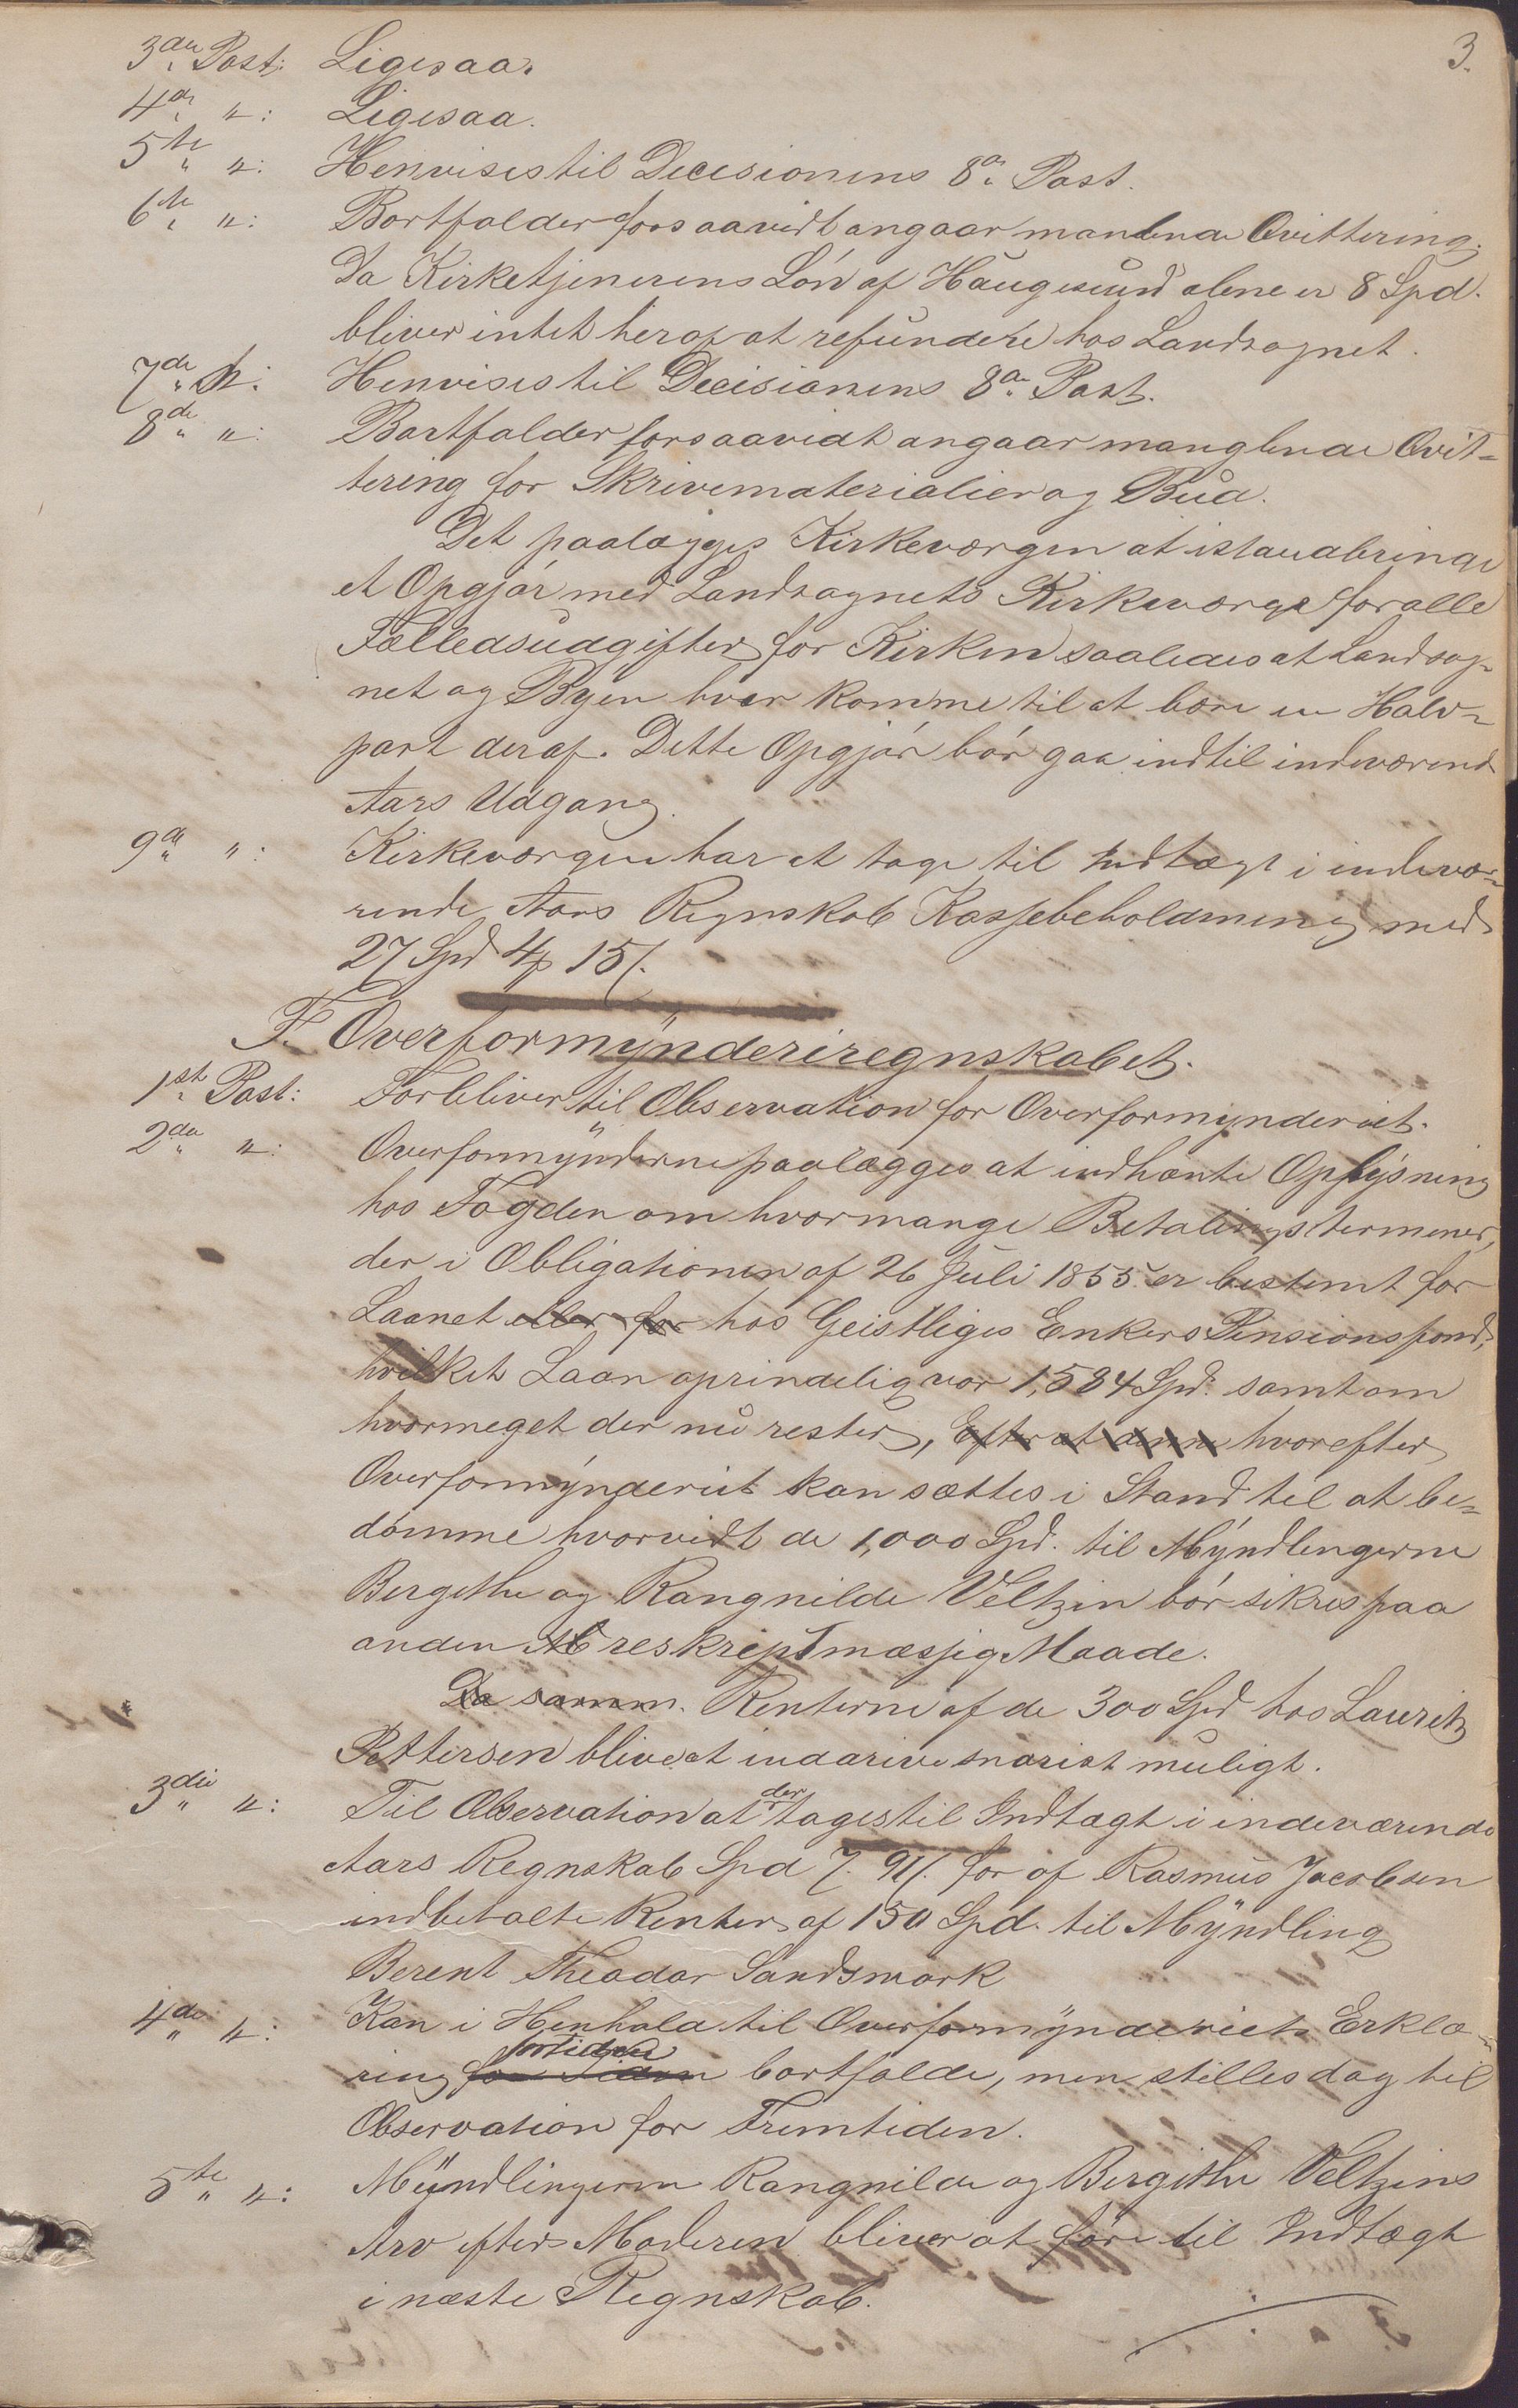 3.
3die Post: Ligesaa.
4de " : Ligesaa.
5te " : Henvises til Decisionens 8de Post.
6te " : Bortfalder forsaavidt angaar manlende Qvittering.
Da Kirketjenerens Lön af Haugesund alene er 8 Spd.
bliver intet heraf at refundere hos Landsognet.
7de " : Henvises til Decisionens 8de Post.
8de " : Bortfalder forsaavidt angaar manglende Qvit-
tering for Skrivematerialier og Bud.
Det paalægges Kirkeværgen at istandbringe
et Opgjör med Landsognets Kirkeværge for alle
Fælledsudgifter for Kirken saaledes at Landsog-
net og Byen hver komme til at bære en Halv-
part deraf. Dette Opgjör bör gaa indtil indeværende
Aars Udgang.
9de " : Kirkeværgen har at tage til Indtægt i indevæ-
rende Aars Regnskab Kassebeholdning med
27 Spd 4 15/.
F. Overformynderiregnskabet.
1ste Post: Forbliver til Observation for Overformynderiet.
2den " : Overformynderne paalægges at indhente Oplysning
hos Fogden om hvormange Betalingsterminer,
der i Obligationen af 26 Juli 1855 er bestemt for
Laanet eller for hos Geistliges Enkers Pensionsfond,
hvilket Laan oprindelig var 1,584 Spd. samt om
hvormeget der nu rester, Efter at denn hvorefter
Overformynderiet kan sættes i Stand til at be-
dömme hvorvidt de 1,000 Spd. til Myndlingerne
Bergithe og Rangnilde Veltzin bör sikres paa
anden reskriptmæssig Maade.
Da samm. Renterne af de 300 Spd hos Lauritz
Pettersen blive at inddrive snarest muligt.
3die " : Til Observation at der tages til Indtægt i indeværende
Aars Regnskab Spd 7. 91/. for af Rasmus Jacobsen
indbetalte Renter af 150 Spd. til Myndling
Berent Theodor Sandsmark
4de " : Kan i Henhold til Overformynderiets Erklæ-
ring for Tiden fortiden bortfalde, men stilles dog til
Observation for Fremtiden.
5te " : Myndlingerne Rangnilde og Bergithe Veltzins
Arv efter Moderen bliver at före til Indtægt
i næste Regnskab.